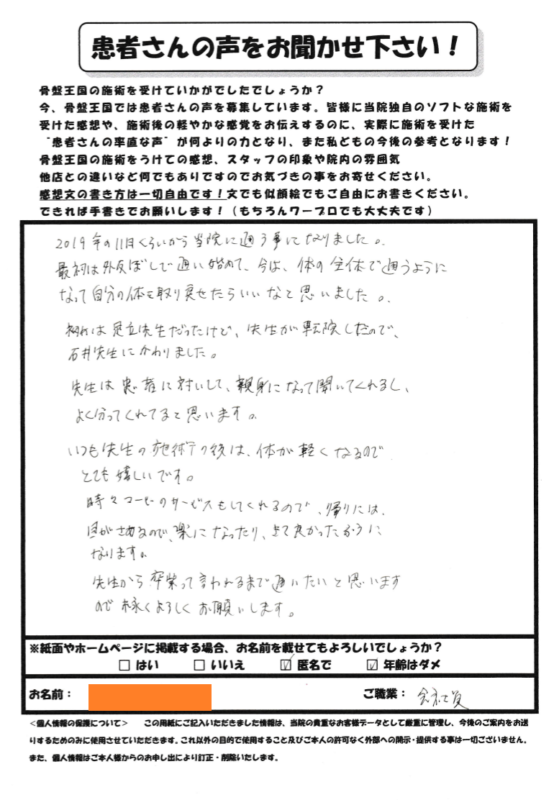 患者さんの声をお聞かせ下さい！
骨盤王国の施術を受けていかがでしたでしょうか？
今、骨盤王国では患者さんの声を募集しています。皆様に当院独自のソフトな施術を
受けた感想や、施術後の軽やかな感覚をお伝えするのに、実際に施術を受けた
“患者さんの率直な声”が何よりの力となり、また私どもの今後の参考となります！
骨盤王国の施術をうけての感想、スタッフの印象や院内の雰囲気
他店との違いなど何でもありですのでお気づきの事をお寄せください。
感想文の書き方は一切自由です！文でも似顔絵でもご自由にお書きください。
できれば手書きでお願いします！（もちろんワープロでも大丈夫です）
2019年の11月くらいから当院に通う事になりました。
最初は外反ぼしで通い始めて、今は、体の全体で通うように
なって自分の体を取り戻せたらいいなと思いました。
初めは足立先生だったけど、先生が転院したので、
石井先生にかわりました。
先生は患者に対して、親身になって聞いてくれるし、
よく分ってくれてると思います。
いつも先生の施術の後は、体が軽くなるので
とても嬉しいです。
時々コーヒーのサービスもしてくれるので、帰りには、
目がさめるので、楽になったり、
なります。
先生から卒業って言われるまで通いたいと思います
ので末永くよろしくお願いします。
※紙面やホームページに掲載する場合、お名前を載せてもよろしいでしょうか？
□ はい □ いいえ ☑ 匿名で ☑ 年齢はダメ
お名前： ご職業： 会社員
<個人情報の保護について> この用紙にご記入いただきました情報は、当院の貴重なお客様データとして厳重に管理し、今後のご案内をお送
りするためのみに使用させていただきます。これ以外の目的で使用すること及びご本人の許可なく外部への開示・提供する事は一切ございません。
また、個人情報はご本人様からのお申し出により訂正・削除いたします。